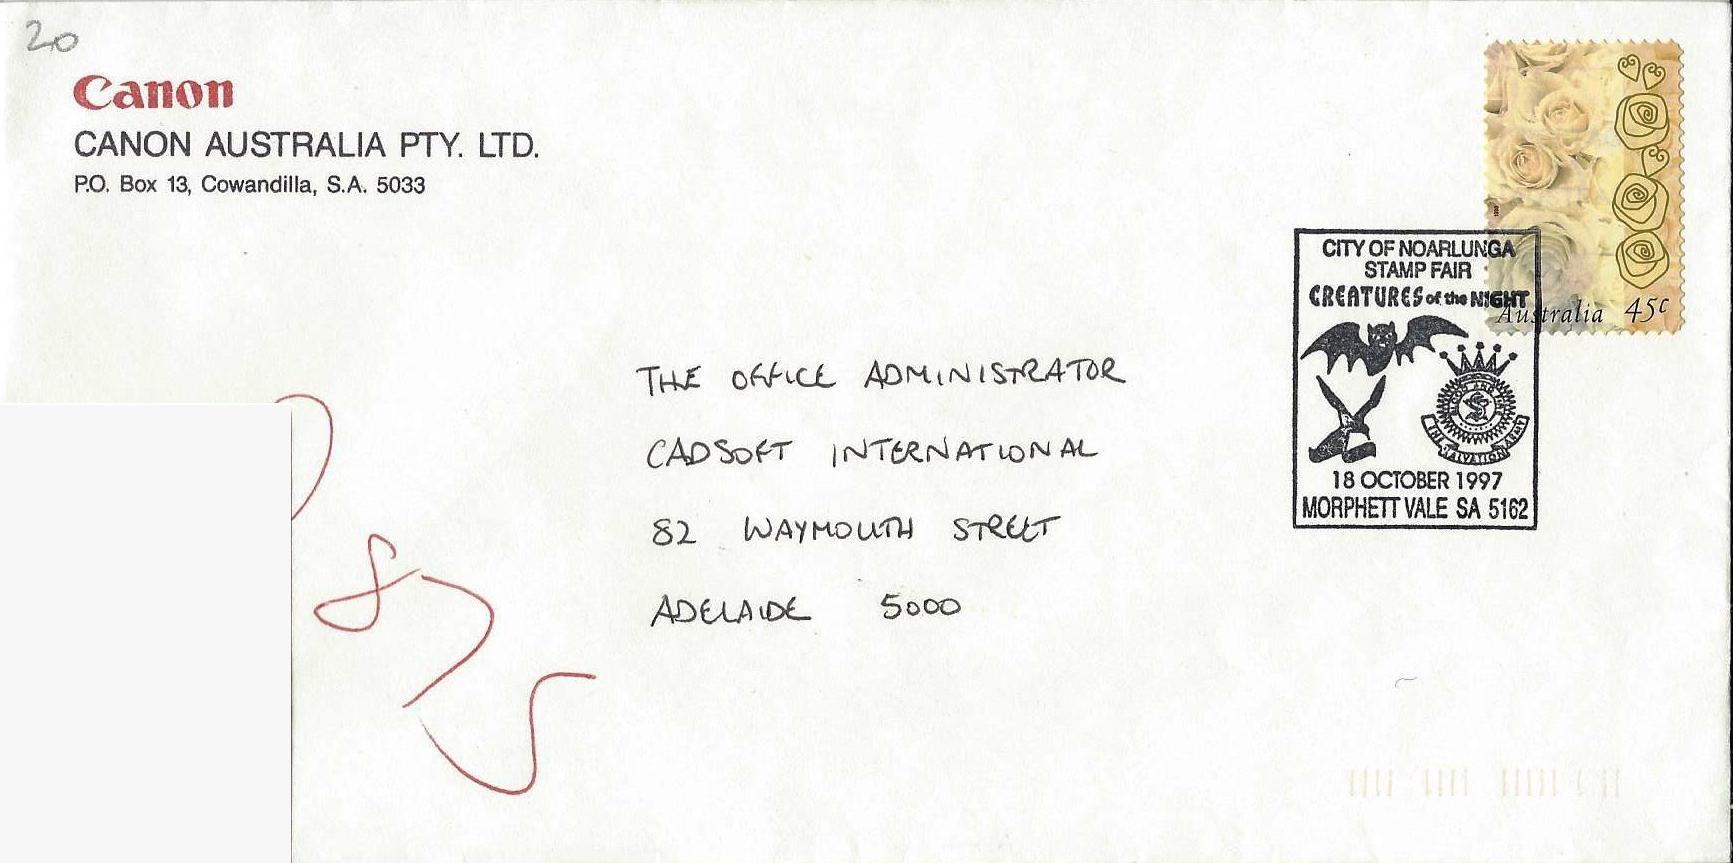 20
Canon
CANON AUSTRALIA PTY. LTD.
P.O. Box 13, Cowandilla, S.A. 5033
Australia 45c
CITY OF NOARLUNGA
STAMP FAIR
CREATURES of the NIGHT
THE SALVATION ARMY
18 OCTOBER 1997
MORPHETT VALE SA 5162
THE OFFICE ADMINISTRATOR
CADSOFT INTERNATIONAL
82 WAYMOUTH STREET
ADELAIDE 5000